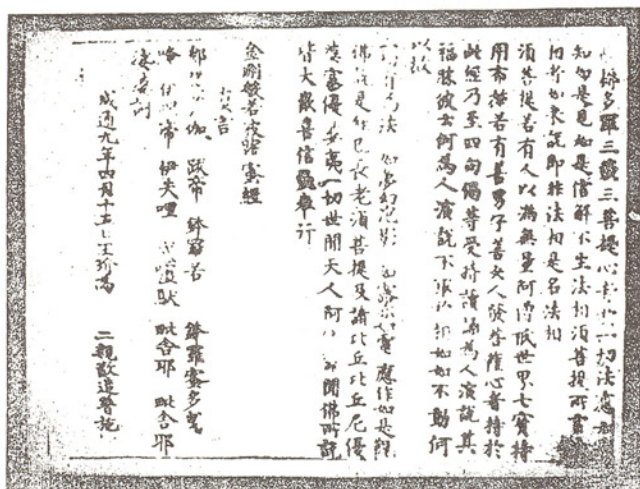 耨多羅三藐三菩提心者於一切法應如
知如是見如是信解不生法相須菩提所言
法相者如來說即非法相是名法相
須菩提若有人以滿無量阿僧祇世界七寶持
用布施若有善男子善女人發菩薩心者持於
此經乃至四句偈等受持讀誦為人演說其
福勝彼云何為人演說不取於相如如不動何
以故
一切有為法 如夢幻泡影 如露亦如電 應作如是觀
佛說是經已長老須菩提及諸比丘比丘尼優
婆塞優婆夷一切世間天人阿 聞佛所說
皆大歡喜信受奉行
金剛般若波羅蜜經
真言
那 伽 跋帝 鉢羅若 鉢羅蜜多曳
唵 伊利帝 伊失哩 盧馱 毗舍耶 毗舍耶
婆訶
咸通九年四月十五日王玠為 二親敬造普施